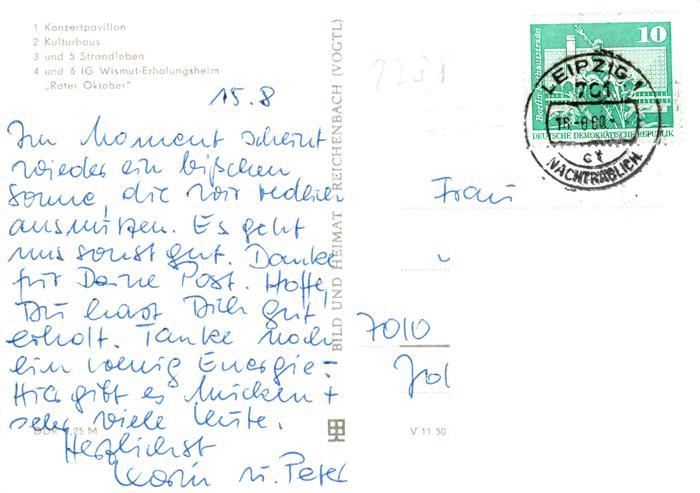 1 Konzertpavillon
2 Kulturhaus
3 und 5 Strandleben
4 und 6 IG Wismut-Erholungsheim
„Roter Oktober"
15.8
Im Moment scheint
wieder ein bißchen
Sonne, die wir
ausnützen. Es geht
uns sonst gut. Danke
für Deine Post. Hoffe,
Du hast Dich gut
erholt. Tanke noch
ein wenig Energie.
Hier gibt es Mücken +
sehr viele Leute.
Herzlichst
Karin u. Peter
DDR 0,25 M
BILD UND HEIMAT REICHENBACH (VOGTL)
V 11 50
2238
10
DEUTSCHE DEMOKRATISCHE REPUBLIK
LEIPZIG 1
701
NACHTRÄGLICH
Frau
7010